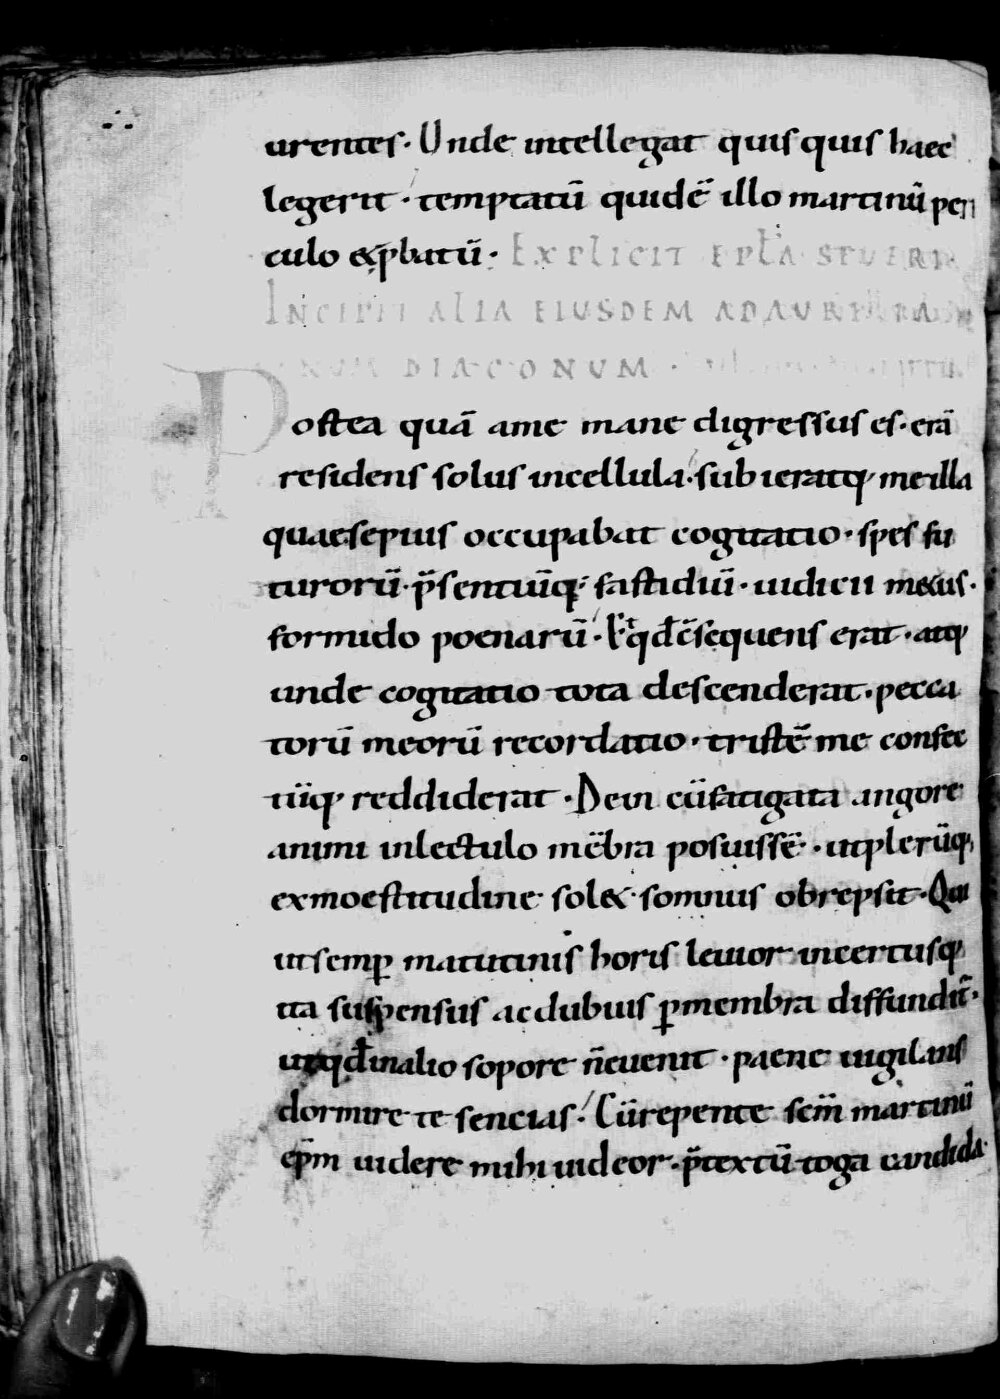 urentes· Unde intellegat quisquis haec
legerit· temptatū quidē illo martinū peri
culo exp̄batū· EXPLICIT EPL̄A SEVERI
INCIPIT ALIA EIUSDEM AD AURELI
DIACONUM·
Postea quā ame mane digressus es· erā
residens solus incellula· subieratq; me illa
quae sepius occupabat cogitatio· spes fu
turorū· p̄sentiūq; fastidiū· iudicii metus·
formido poenarū· sequens erat· atq;
unde cogitatio tota descenderat· pecca
torū meorū recordatio· tristē me confec
tūq; reddiderat· Dein cū fatigata angore
animi inlectulo mēbra posuissē· utplerūq;
exmoestitudine sol&· somnus obrepsit· Qui
utsemp̄ matutinis horis leuior incertusq;
ita suspensus acdubius p̄membra diffundit̄·
utqđinalio sopore n̄euenit· paene uigilans
dormire te sencias· Cūrepente scm̄ martinū
ep̄m uidere mihi uideor· p̄textū toga candida·